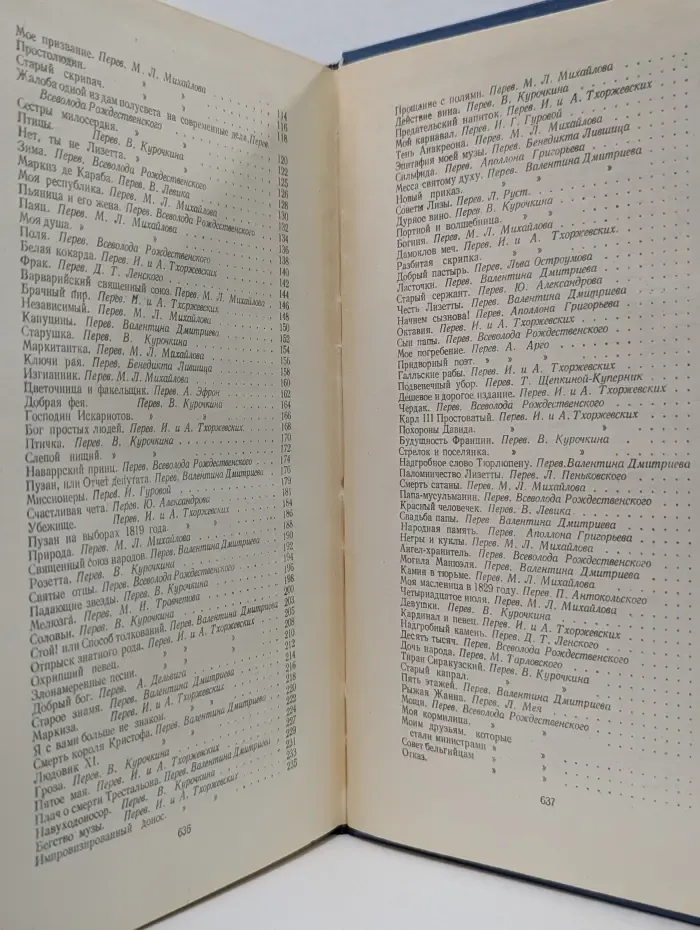 Мое призвание. Перев. М. Л. Михайлова
Простолюдин. » »
Старый скрипач. » » 114
Жалоба одной из дам полусвета на современные дела. Перев. 116
Всеволода Рождественского 118
Сестры милосердия. » »
Птицы. Перев. В. Курочкина 120
Нет, ты не Лизетта. » » 122
Зима. Перев. Всеволода Рождественского 125
Маркиз де Караба. Перев. В. Левика 126
Моя республика. Перев. М. Л. Михайлова 128
Пьяница и его жена. Перев. Всеволода Рождественского 130
Паяц. Перев. М. Л. Михайлова 132
Моя душа. » » 134
Поля. Перев. Всеволода Рождественского 136
Белая кокарда. Перев. И. и А. Тхоржевских 138
Фрак. Перев. Д. Т. Ленского 140
Варварийский священный союз. Перев. М. Л. Михайлова 142
Брачный пир. Перев. И. и А. Тхоржевских 144
Независимый. Перев. М. Л. Михайлова 146
Капуцины. Перев. Валентина Дмитриева 148
Старушка. Перев. В. Курочкина 150
Маркитантка. Перев. М. Л. Михайлова 152
Ключи рая. Перев. Бенедикта Лившица 154
Изгнанник. Перев. М. Л. Михайлова 156
Цветочница и факельщик. Перев. А. Эфрон 158
Добрая фея. Перев. В. Курочкина 160
Господин Искариотов. » » 162
Бог простых людей. Перев. И. и А. Тхоржевских 164
Птичка. Перев. В. Курочкина 166
Слепой нищий. » » 168
Наваррский принц. Перев. Всеволода Рождественского 170
Пузан, или Отчет депутата. Перев. Валентина Дмитриева 172
Миссионеры. Перев. И. Гуровой 174
Счастливая чета. Перев. Ю. Александрова 176
Убежище. Перев. И. и А. Тхоржевских 179
Пузан на выборах 1819 года. » » 181
Природа. Перев. М. Л. Михайлова 184
Священный союз народов. Перев. Валентина Дмитриева 186
Розетта. Перев. В. Курочкина 188
Святые отцы. Перев. Всеволода Рождественского 190
Падающие звезды. Перев. В. Курочкина 192
Мелюзга. Перев. М. И. Травчетова 194
Соловьи. Перев. В. Курочкина 196
Стой! или Способ толкований. Перев. Валентина Дмитриева 198
Отпрыск знатного рода. Перев. И. и А. Тхоржевских 200
Охрипший певец. » » 203
Злонамеренные песни. » » 205
Добрый бог. Перев. А. Дельвига 208
Старое знамя. Перев. Валентина Дмитриева 210
Маркиза. Перев. И. и А. Тхоржевских 212
Я с вами больше не знаком. » » 214
Смерть короля Кристофа. Перев. Валентина Дмитриева 216
Людовик XI. » » 218
Гроза. Перев. В. Курочкина 220
Пятое мая. Перев. И. и А. Тхоржевских 222
Плач о смерти Трестальона. Перев. Валентина Дмитриева 224
Навуходоносор. Перев. В. Курочкина 227
Бегство музы. Перев. И. и А. Тхоржевских 229
Импровизированный донос. » » 231
233
235
636
Прощание с полями. Перев. М. Л. Михайлова
Действие вина. Перев. В. Курочкина
Предательский напиток. Перев. И. и А. Тхоржевских
Мой карнавал. Перев. И. Г. Гуровой
Тень Анакреона. Перев. М. Л. Михайлова
Эпитафия моей музы. Перев. Бенедикта Лившица
Сильфида. Перев. Аполлона Григорьева
Месса святому духу. Перев. Валентина Дмитриева
Новый приказ. » »
Советы Лизы. Перев. Л. Руст.
Дурное вино. Перев. В. Курочкина
Портной и волшебница. » »
Богиня. Перев. М. Л. Михайлова
Дамоклов меч. Перев. И. и А. Тхоржевских
Разбитая скрипка. » »
Добрый пастырь. Перев. Льва Остроумова
Ласточки. Перев. Валентина Дмитриева
Старый сержант. Перев. Ю. Александрова
Честь Лизетты. Перев. Валентина Дмитриева
Начнем сызнова! Перев. Аполлона Григорьева
Октавия. Перев. И. и А. Тхоржевских
Сын папы. Перев. Всеволода Рождественского
Мое погребение. Перев. А. Арго
Придворный поэт. » »
Галльские рабы. Перев. И. и А. Тхоржевских
Подвенечный убор. Перев. Т. Щепкиной-Куперник
Дешевое и дорогое издание. Перев. И. и А. Тхоржевских
Чердак. Перев. Всеволода Рождественского
Карл III Простоватый. Перев. И. и А. Тхоржевских
Похороны Давида. » »
Будущность Франции. Перев. В. Курочкина
Стрелок и поселянка. » »
Надгробное слово Тюрлюпену. Перев. Валентина Дмитриева
Паломничество Лизетты. Перев. Л. Пеньковского
Смерть сатаны. Перев. М. Л. Михайлова
Папа-мусульманин. Перев. Всеволода Рождественского
Красный человечек. Перев. В. Левика
Свадьба папы. Перев. Валентина Дмитриева
Народная память. Перев. Аполлона Григорьева
Негры и куклы. Перев. М. Л. Михайлова
Ангел-хранитель. Перев. Всеволода Рождественского
Могила Манюэля. Перев. Валентина Дмитриева
Камин в тюрьме. Перев. М. Л. Михайлова
Моя масленица в 1829 году. Перев. П. Антокольского
Четырнадцатое июля. Перев. М. Л. Михайлова
Девушки. Перев. В. Курочкина
Кардинал и певец. Перев. И. и А. Тхоржевских
Надгробный камень. Перев. Д. Т. Ленского
Десять тысяч. Перев. Всеволода Рождественского
Дочь народа. Перев. М. Тарловского
Тиран Сиракузский. Перев. В. Курочкина
Старый капрал. » »
Пять этажей. Перев. Валентина Дмитриева
Рыжая Жанна. Перев. Л. Мея
Мощи. Перев. Всеволода Рождественского
Моя кормилица. » »
Моим друзьям, которые
стали министрами » »
Совет бельгийцам » »
Отказ. » »
637